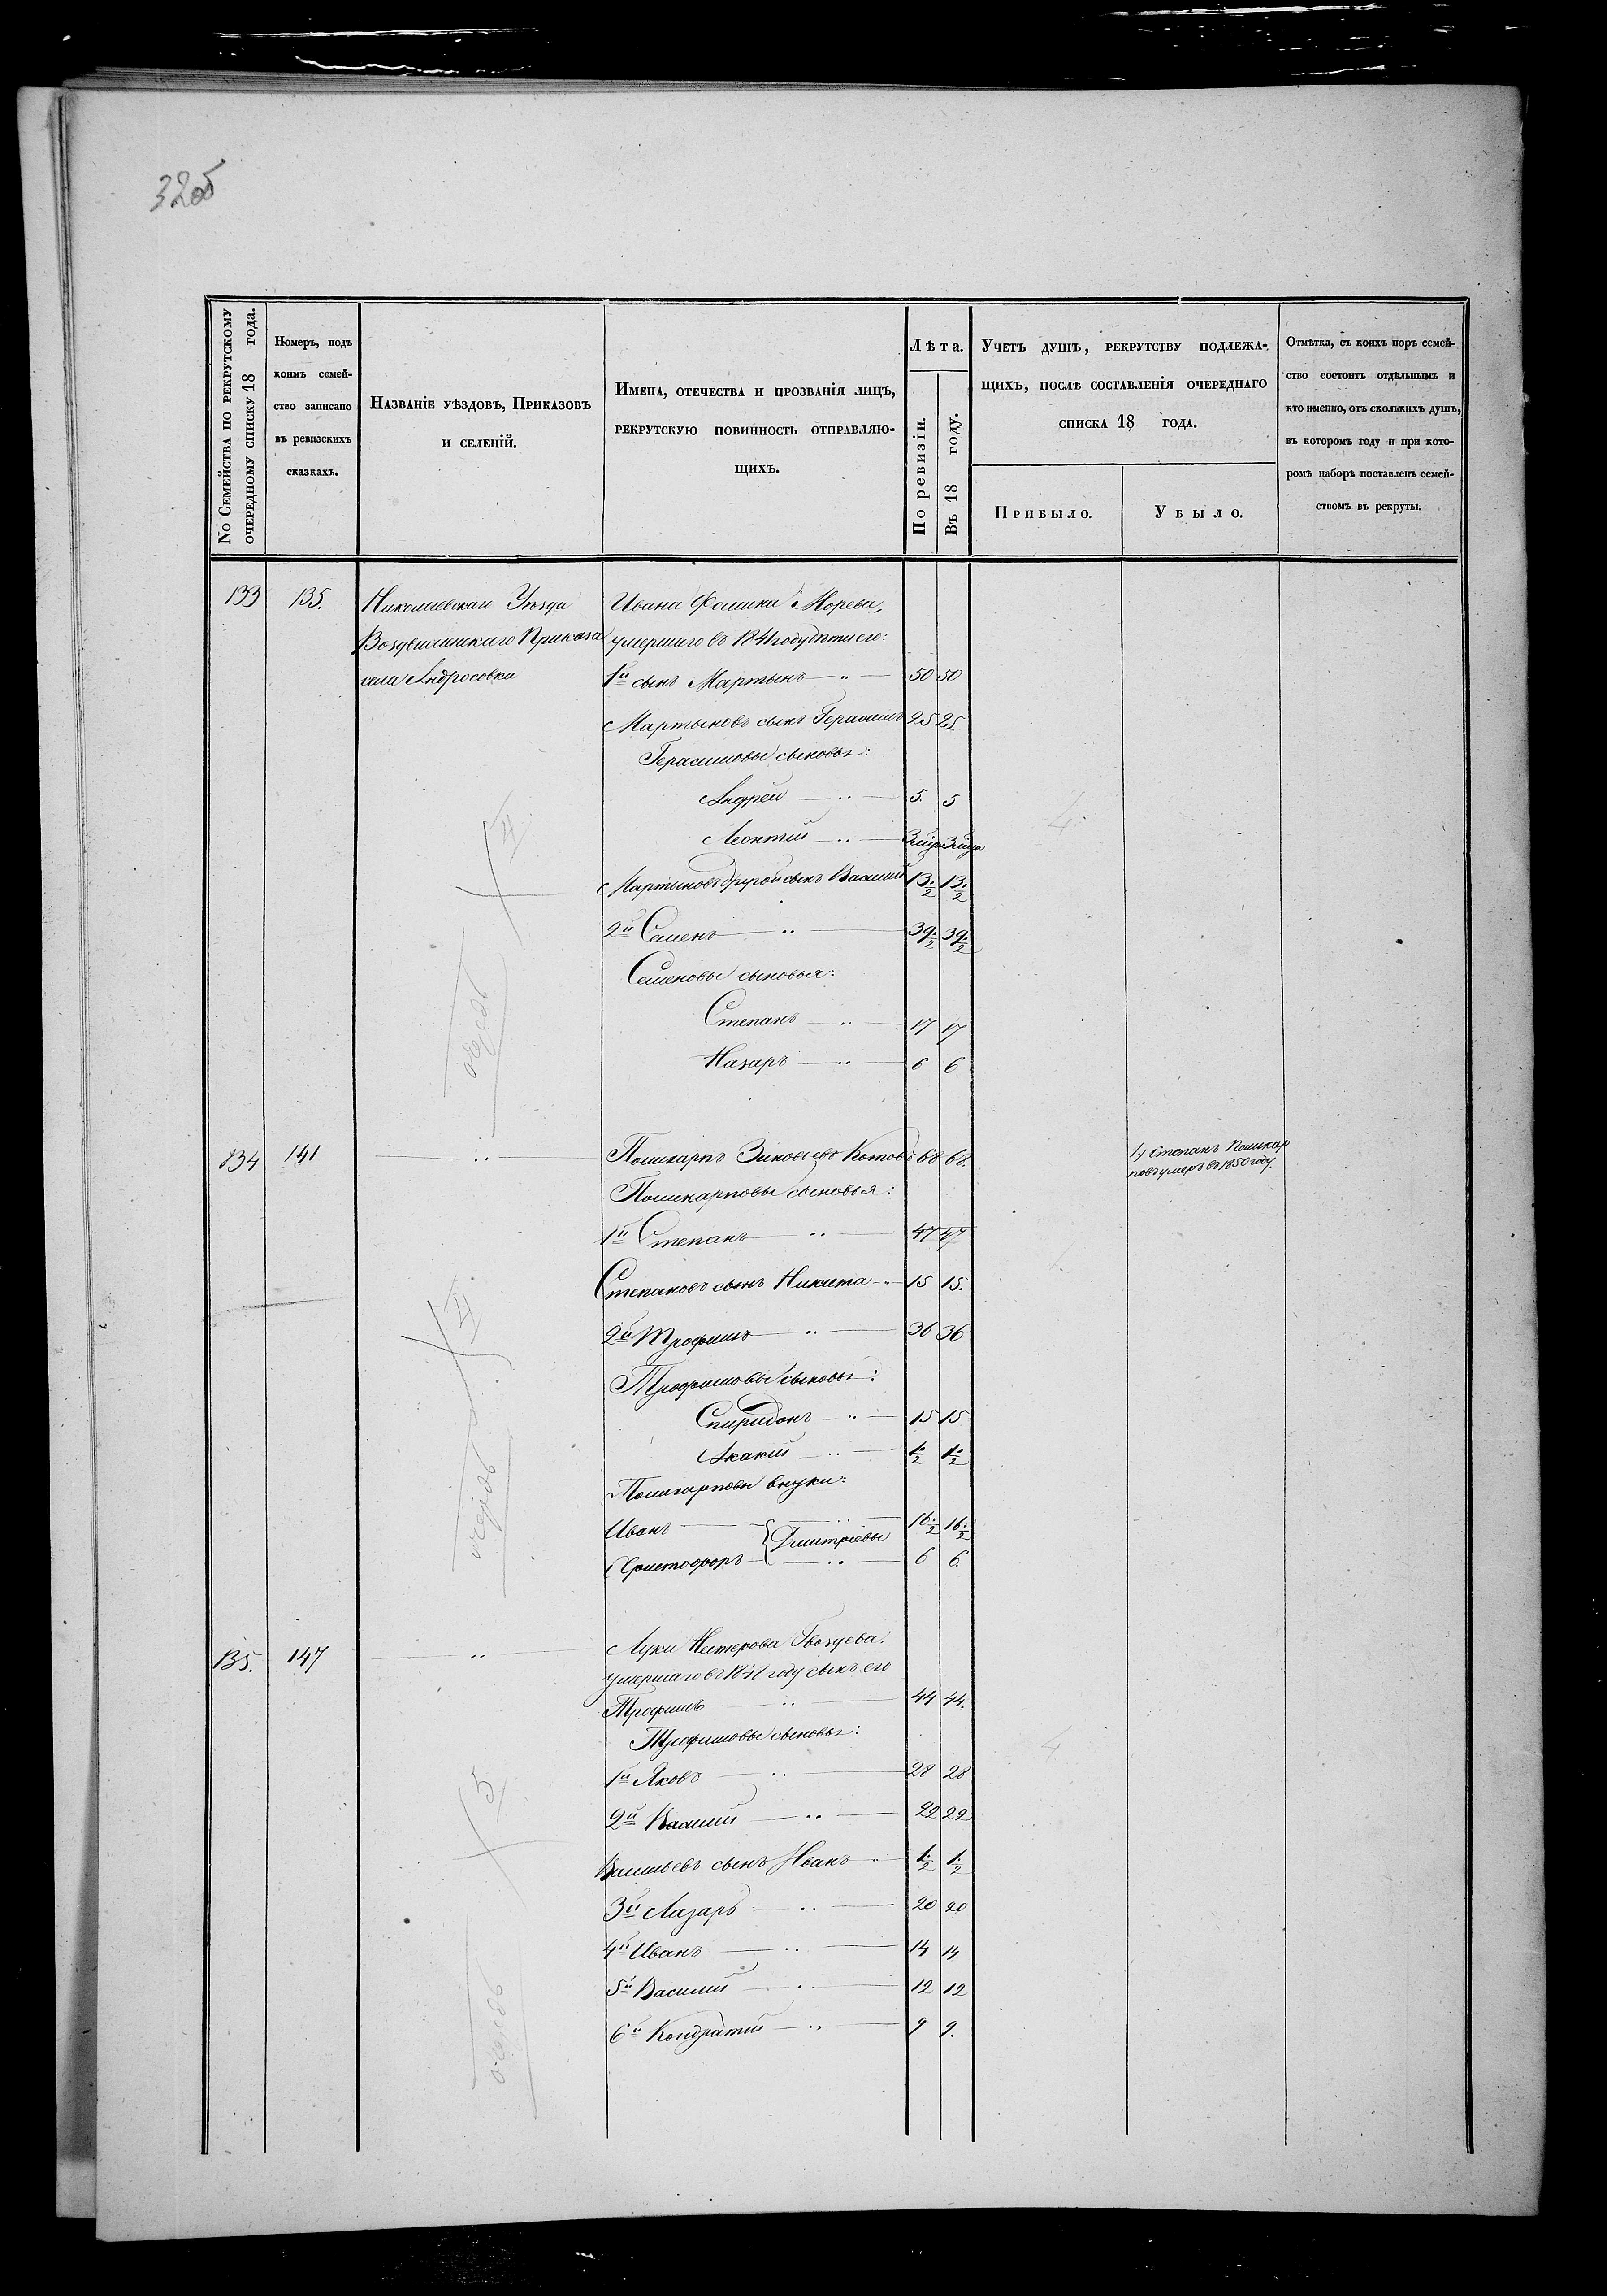 32об
№ Семейства по рекрутскому
очередному списку 18 года.
Номеръ, подъ
коимъ семей-
ство записано
въ ревизскихъ
сказкахъ.
Названіе уѣздовъ, Приказовъ
и селеній.
Имена, отечества и прозванія лицъ,
рекрутскую повинность отправляю-
щихъ.
Лѣта.
По ревизіи.
Въ 18 году.
Учетъ душъ, рекрутству подлежа-
щихъ, послѣ составленія очереднаго
списка 18 года.
Прибыло.
Убыло.
Отмѣтка, съ коихъ поръ семей-
ство состоитъ отдѣльнымъ и
кто именно, отъ сколькихъ душъ,
въ которомъ году и при кото-
ромъ наборѣ поставленъ семей-
ствомъ въ рекруты.
133 135. Николаевскаи Уѣзда Ивана Фомина Морева,
Воздвиженскаго Приказа умершаго въ 1841 году дѣти его:
села Андросовки 1й сынъ Мартынъ 50 50
Мартыновъ сынъ Герасимъ 25 25.
Герасимовы сыновья:
Андрей 5. 5
Леонтій
Мартыновъ другой сынъ Василій 13.½ 13.½
2й Семенъ 39.½ 39.½
Семеновы сыновья:
Степанъ 17 17
Назаръ 6 6
II
очередь
4
134 141 Поликарпъ Зиновьевъ Котовъ 68 68. 1) Степанъ Поликар
повъ умеръ въ 1850 году.
Поликарповы сыновья:
1й Степанъ 47 47
Степановъ сынъ Никита 15 15.
2й Трофимъ 36 36
Трофимовы сыновья:
Спиридонъ 15 15
Акакій ½ ½
Поликарповы внуки:
Иванъ 16.½ 16.½
Дмитріевы
Христофоръ 6 6
II
очередь
135. 147 Луки Нестерова Гвоздева.
умершаго въ 1841 году сынъ его
Трофимъ 44 44.
Трофимовы сыновья:
1й Яковъ 28 28
2й Василій 22 22
Васильевъ сынъ Иванъ 1.½ 1.½
3й Лазарь 20 20
4й Иванъ 14 14
5й Василій 12 12
6й Кондратій 9 9.
5
очередь
4